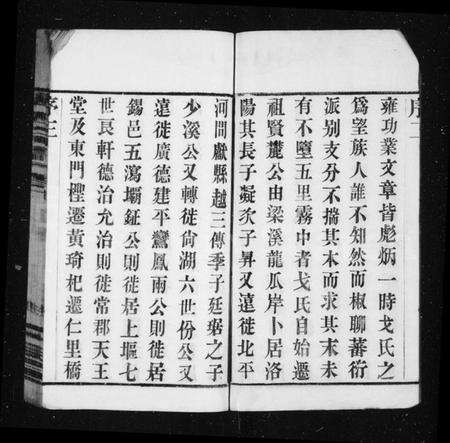 雍功業文章皆彪炳一時戈氏之
爲望族人誰不知然而椒聊蕃衍
派別支分不揣其本而求其末未
有不墮五里霧中者戈氏自始遷
祖賢麓公由梁溪龍瓜岸卜居洛
陽其長子凝次子昇又遠徙北平
序二
河間獻縣越三傳季子廷琚之子
少溪公又轉徙尙湖六世份公又
遠徙廣德建平鸞鳳雨公則徙居
錫邑五瀉壩鉦公則徙居上堰七
世艮軒德治允治則徙常郡天王
堂及東門檉遷黃埼杞遷仁里橋
序三